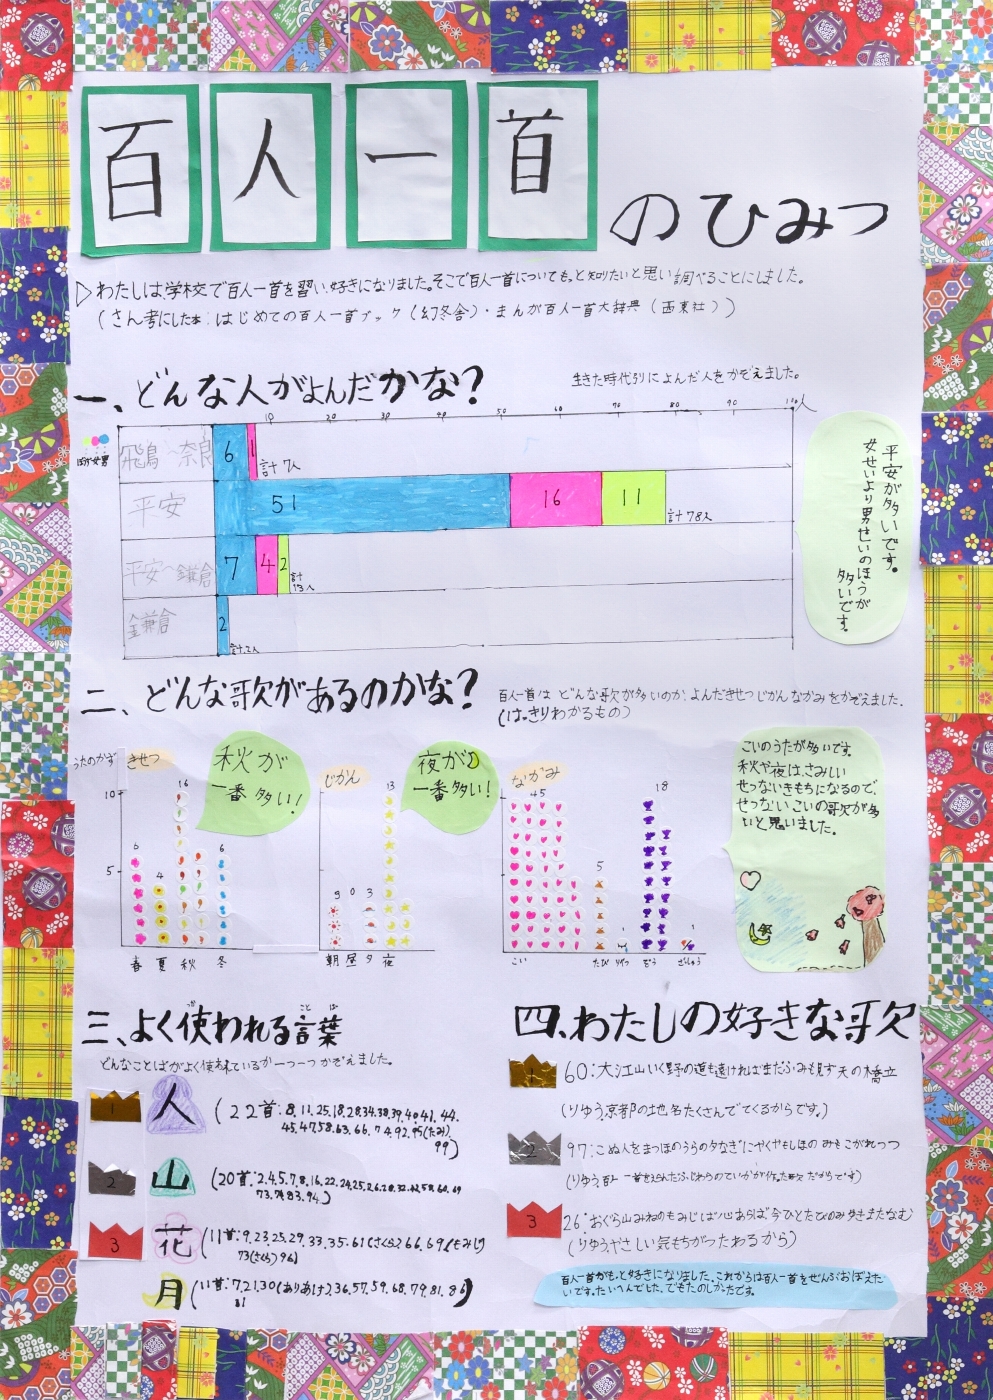 百人一首のひみつ
わたしは、学校で百人一首を習い、好きになりました。そこで百人一首についてもっと知りたいと思い調べることにしました。
(さん考にした本:はじめての百人一首ブック(幻冬舎)・まんが百人一首大辞典(西東社))
一、どんな人がよんだかな?
生きた時代別によんだ人をかぞえました。
10 20 30 40 50 60 70 80 90 100人
ぼうず 女 男
飛鳥~奈良 6 1 計7人
平安 51 16 11 計78人
平安~鎌倉 7 4 2 計13人
鎌倉 2 計2人
平安が多いです。
女せいより男せいのほうが
多いです。
二、どんな歌があるのかな?
百人一首は、どんな歌が多いのか、よんだきせつ、じかん、なかみをかぞえました。
(はっきりわかるもの)
うたのかず
きせつ
秋が
一番多い!
10
5
6 4 16 6
春 夏 秋 冬
じかん
夜が
一番多い!
0 3 13
朝 昼 夕 夜
なかみ
45 5 1 18 1
こい たび ぞう ざっしゅう
こいのうたが多いです。
秋や夜は、さみしい
せつないきもちになるので、
せつないこいの歌が多
いと思いました。
三、よく使われる言葉
つか
こと ば
どんなことばがよく使われているか一つ一つかぞえました。
1 人 (22首:8,11,25,18,28,34,38,39,40,41,44,
45,47,58,63,66,74,92,95(たみ),
99)
2 山 (20首:2,4,5,7,8,16,22,24,25,26,28,32,42,58,60,69
73,74,83,94,)
3 花 (11首:9,23,25,29,33,35,61(さくら),66,69(もみじ)
73(さくら)96)
月 (11首:7,21,30(ありあけ),36,57,59,68,79,81,86
31
四、わたしの好きな歌
1 60:大江山いく野の道も遠ければまだふみも見ず天の橋立
(りゆう、京都の地名たくさんでてくるからです。)
2 97:こぬ人をまつほのうらの夕なぎにやくやもしほの みもこがれつつ
(りゆう、百人一首をえらんだふじわらのていかが作った歌だからです)
3 26:おぐら山みねのもみじば心あらば今ひとたびのみゆきまたなむ
(りゆう、やさしい気もちがつたわるから)
百人一首がもっと好きになりました。これからは百人一首をぜんぶおぼえた
いです。たいへんでした。でもたのしかったです。